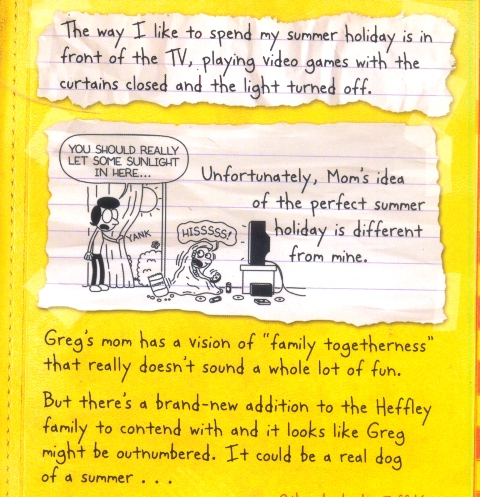 The way I like to spend my summer holiday is in
front of the TV, playing video games with the
curtains closed and the light turned off.
YOU SHOULD REALLY
LET SOME SUNLIGHT
IN HERE...
YANK
HISSSSS!
Unfortunately, Mom's idea
of the perfect summer
holiday is different
from mine.
Greg's mom has a vision of "family togetherness"
that really doesn't sound a whole lot of fun.
But there's a brand-new addition to the Heffley
family to contend with and it looks like Greg
might be outnumbered. It could be a real dog
of a summer . . .